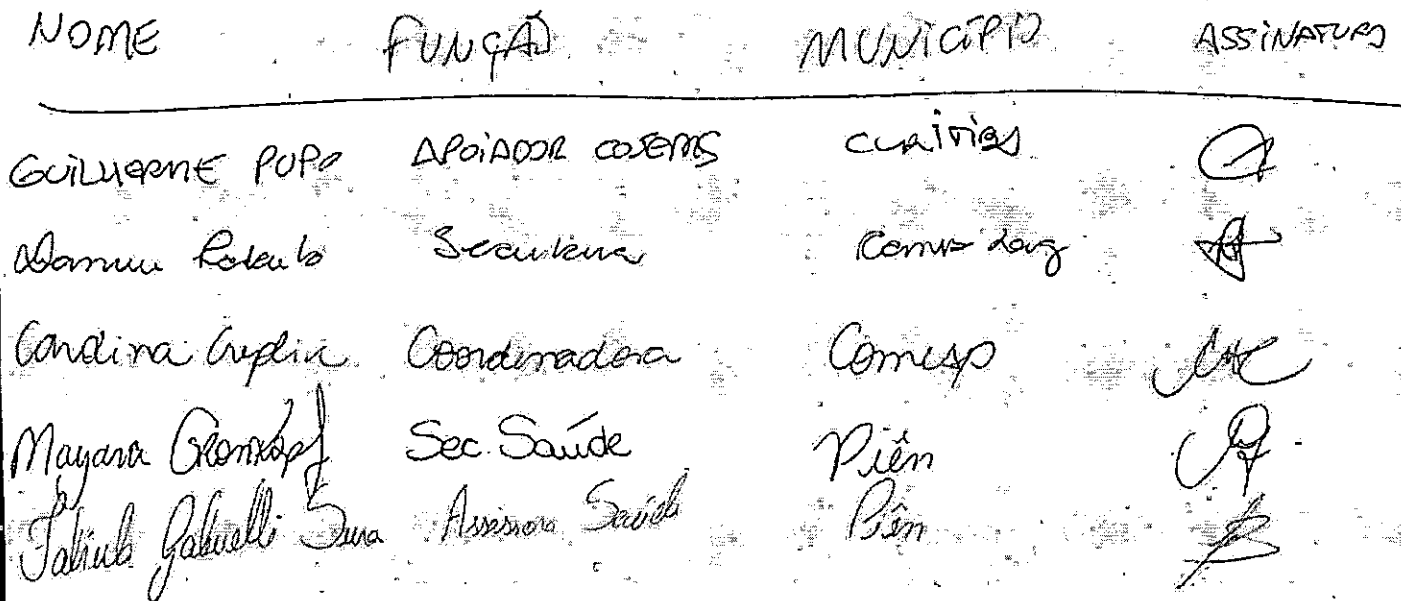 NOME FUNÇÃO MUNICÍPIO ASSINATURA
GUILHERME PUPO APOIADOR COSEMS CURITIBA
Secretária Campo Larg
Carolina Coordenadora Comesp
Mayara Sec. Saúde Piên
Gabrielli Assessora Saúde Piên